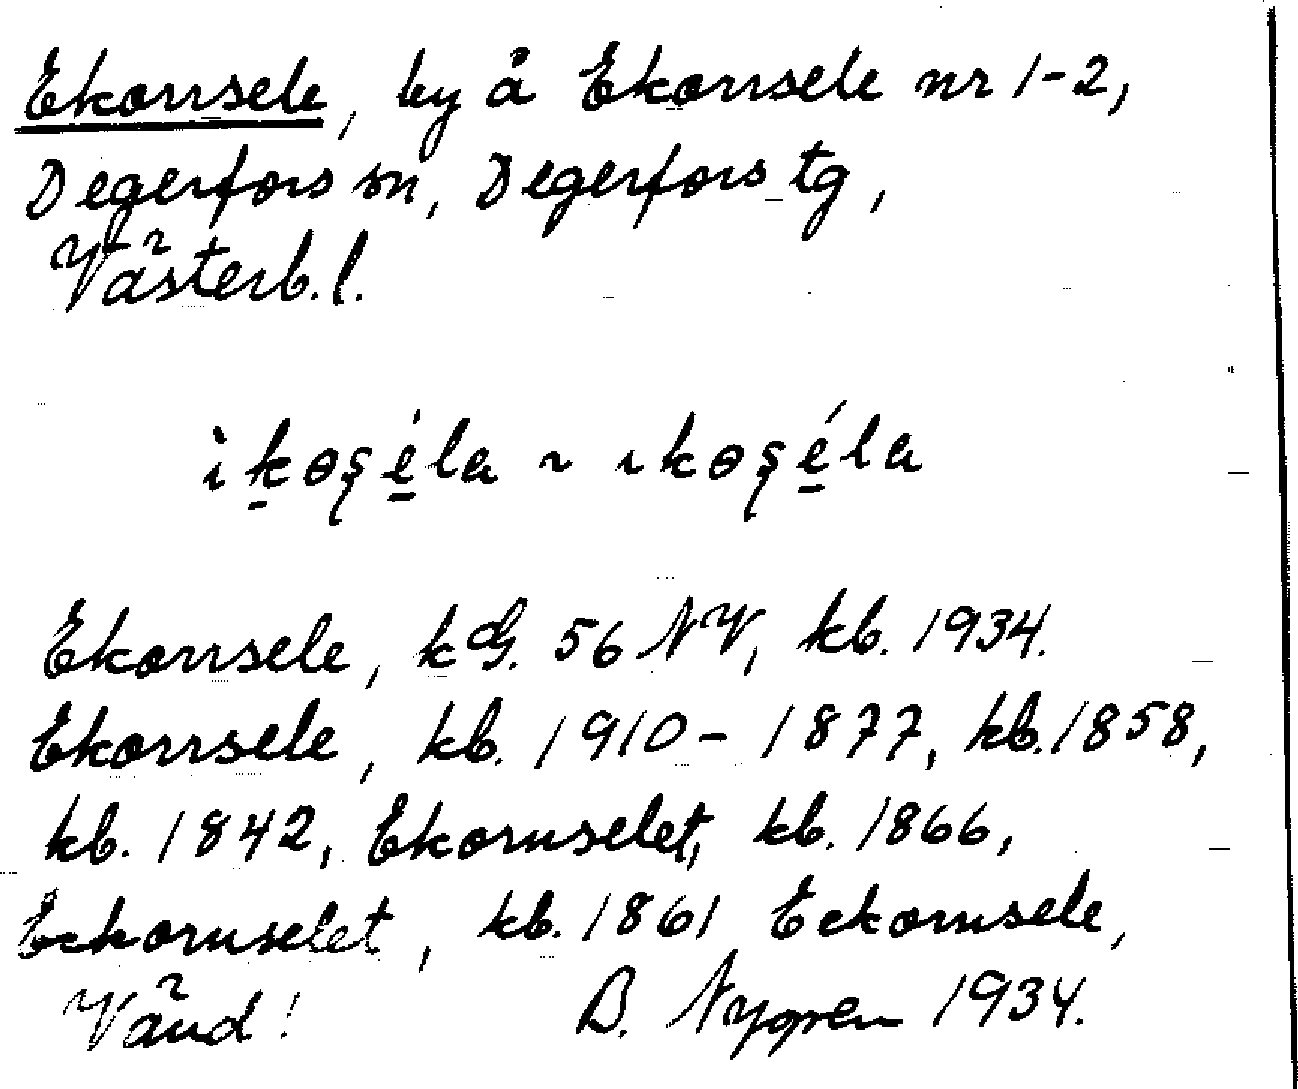 Ekorrsele, by å Ekorrsele nr 1-2,
Degerfors sn, Degerfors tg,
Västerb. l.
Ekorrsele, kG. 56 NV, kb. 1934.
Ekorrsele, kb. 1910-1877, kb. 1858,
kb. 1842, Ekornselet, kb. 1866,
Eckornselet, kb. 1861 Eckornsele,
Vänd! B. Nygren 1934.